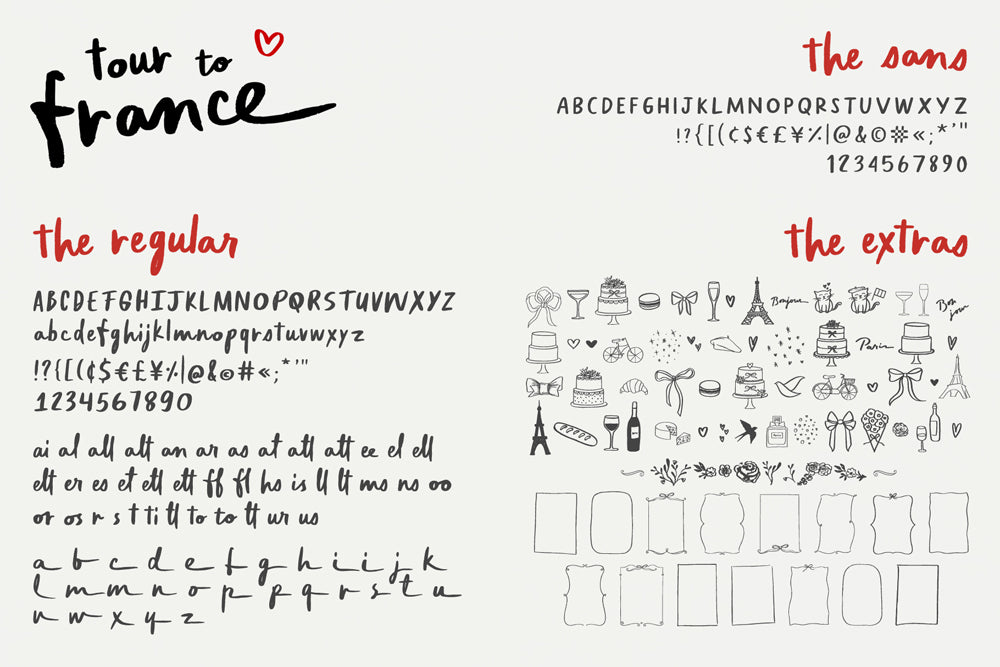 tour to
france
the sans
ABCDEFGHIJKLMNOPQRSTUVWXYZ
!?{[(¢$€£¥٪|@&©#«;*'"
1234567890
the regular
ABCDEFGHIJKLMNOPQRSTUVWXYZ
abcdefghijklmnopqrstuvwxyz
!?{[(¢$€£¥٪|@&©#«;*'"
1234567890
ai al all alt an ar as at att att ee el ell
elt er es et ett ett ff fl hs is ll lt ms ns oo
or os r s t ti tl to to tt ur us
a b c d e f g h i i j k
l m m n o p p q r s t u
v w x y z
the extras
Bonjour
Bon
jour
Paris